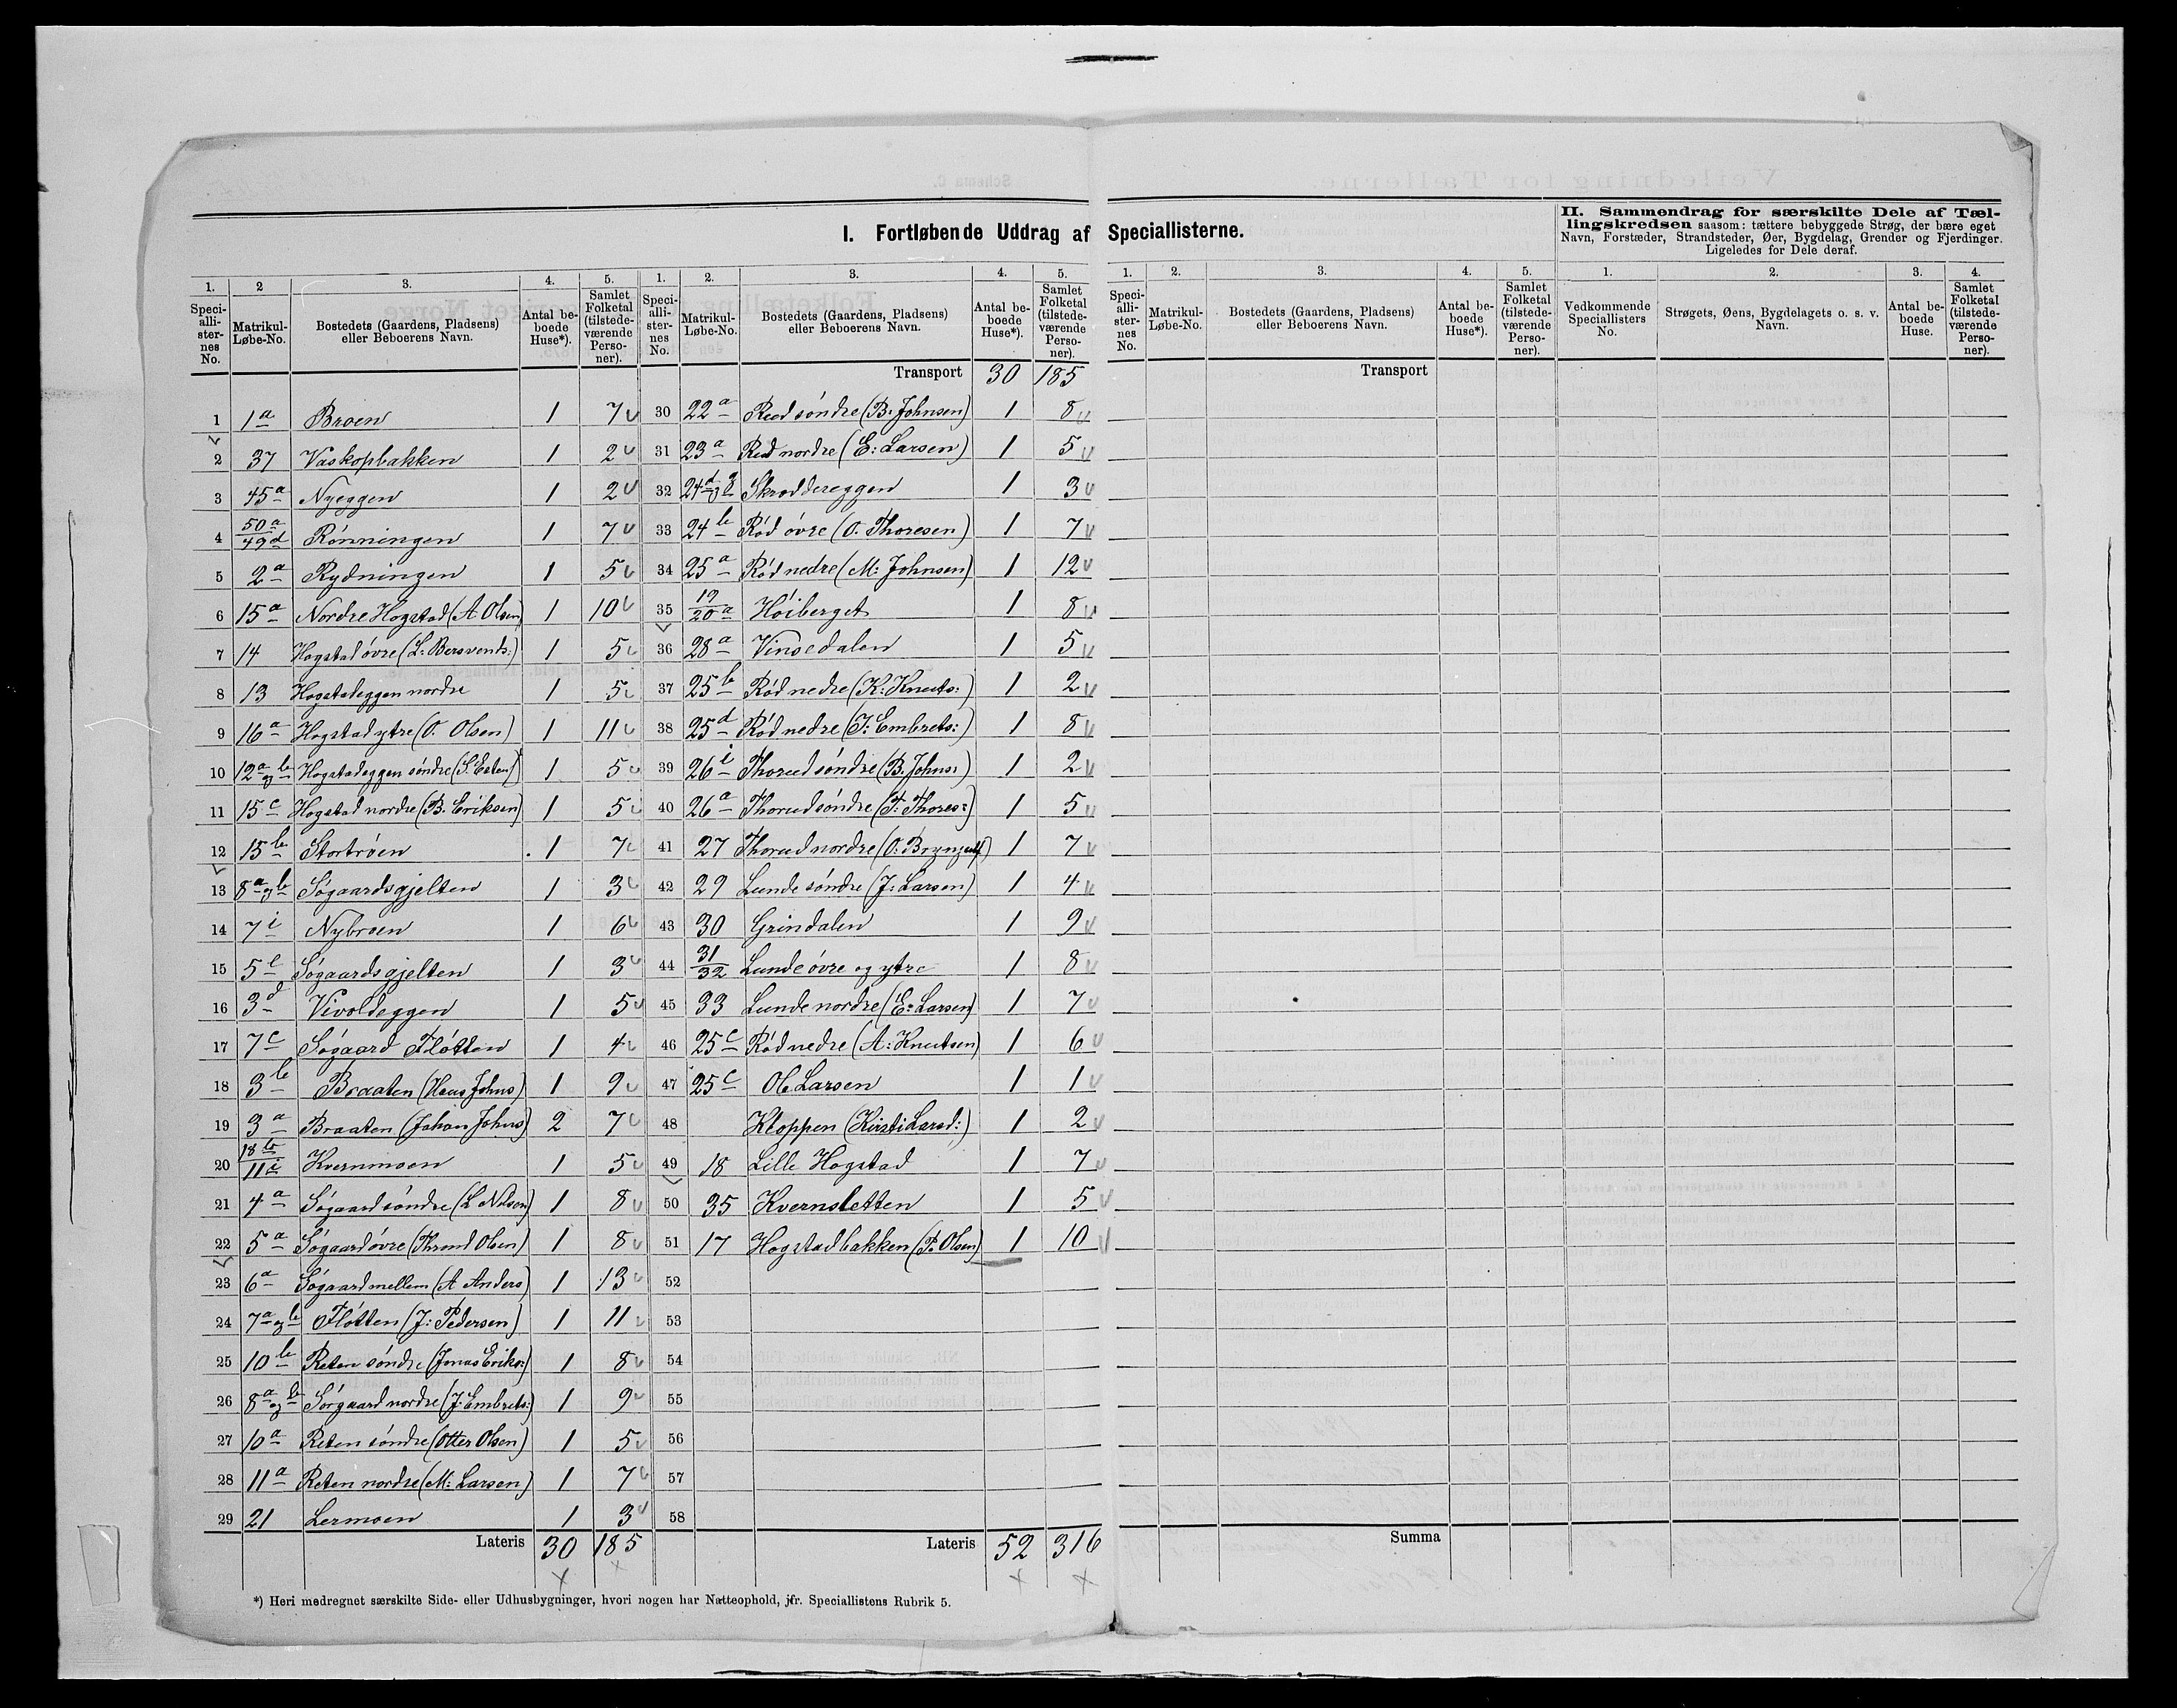 I. Fortløbende Uddrag af Speciallisterne.
II. Sammendrag for særskilte Dele af Tæl-
lingskredsen saasom: tættere bebyggede Strøg, der bære eget
Navn, Forstæder, Strandsteder, Øer, Bygdelag, Grender og Fjerdinger.
Ligeledes for Dele deraf.
1. 2 3. 4. 5. 1. 2. 3. 4. 5. 1. 2. 3. 4. 5. 1. 2. 3. 4.
Speci-alli-ster-nes No. Matrikul-Løbe-No. Bostedets (Gaardens, Pladsens) eller Beboerens Navn. Antal be-boede Huse*). Samlet Folketal (tilstede-værende Perso-ner).
Speci-alli-ster-nes No. Matrikul-Løbe-No. Bostedets (Gaardens, Pladsens) eller Beboerens Navn. Antal be-boede Huse*). Samlet Folketal (tilstede-værende Perso-ner).
Speci-alli-ster-nes No. Matrikul-Løbe-No. Bostedets (Gaardens, Pladsens) eller Beboerens Navn. Antal be-boede Huse*). Samlet Folketal (tilstede-værende Perso-ner).
Vedkommende Speciallisters No. Strøgets, Øens, Bygdelagets o. s. v. Navn. Antal be-boede Huse. Samlet Folketal (tilstede-værende Perso-ner).
1 1a Broen 1 7
2 37 Vaskopbakken 1 2
3 45a Nyeggen 1 2
4 50a/49d Rönningen 1 7
5 2a Rydningen 1 5
6 15a Nordre Hogstad (A Olsen) 1 10
7 14 Hogstad óvre (L: Bersvends:) 1 5
8 13 Hogstadeggen nordre 1 5
9 16a Hogstad ytre (O. Olsen) 1 11
10 12a og b Hogstadeggen söndre (S. Esten) 1 5
11 15c Hogstad nordre (B. Eriksen) 1 5
12 15b Stortröen 1 7
13 8a og b Sógaardsgjelten 1 3
14 7i Nybroen 1 6
15 5e Sógaardsgjelten 1 3
16 3d Vivoldeggen 1 5
17 7c Sógaard Flótten 1 4
18 3b Braaten (Hans Johns) 1 9
19 3a Braaten (Johan Johns) 2 7
20 18b/11i Kvernmoen 1 5
21 4a Sógaard söndre (L Nilsen) 1 8
22 5a Sógaard óvre (Thrond Olsen) 1 8
23 6a Sógaard mellem (A Anders) 1 13
24 7a og b Flótten (J: Pedersen) 1 11
25 10b Reten söndre (Jonas Eriks:) 1 8
26 8a og b Sórgaard nordre (J: Embrets:) 1 9
27 10a Reten söndre (Otter Olsen) 1 5
28 11a Reten nordre (M: Larsen) 1 7
29 21 Lermoen 1 3
Lateris 30 185
Transport 30 185
30 22a Rud söndre (B: Johnsen) 1 8
31 23a Rud nordre (E: Larsen) 1 5
32 24d og e Skræddereggen 1 3
33 24b Ród óvre (O. Thoresen) 1 7
34 25a Ród nedre (M: Johnsen) 1 12
35 19/20a Hóiberget 1 8
36 28a Vinsedalen 1 5
37 25b Ród nedre (K: Knuts:) 1 2
38 25d Ród nedre (J: Embrets:) 1 8
39 26i Thorud söndre (B. Johns:) 1 2
40 26a Thorud söndre (T: Thores:) 1 5
41 27 Thorud nordre (O. Bryngulf) 1 7
42 29 Lunde söndre (J: Larsen) 1 4
43 30 Grindalen 1 9
44 31/32 Lunde óvre og ytre 1 8
45 33 Lunde nordre (E: Larsen) 1 7
46 25c Ród nedre (A: Knutsen) 1 6
47 25c Ole Larsen 1 1
48 Kloppen (Kirsti Larsd:) 1 2
49 18 Lille Hogstad 1 7
50 35 Kvernsletten 1 5
51 17 Hogstadbakken (P. Olsen) 1 10
52
53
54
55
56
57
58
Lateris 52 316
Transport
Summa
*) Heri medregnet særskilte Side- eller Udhusbygninger, hvori nogen har Natteophold, jfr. Speciallistens Rubrik 5.